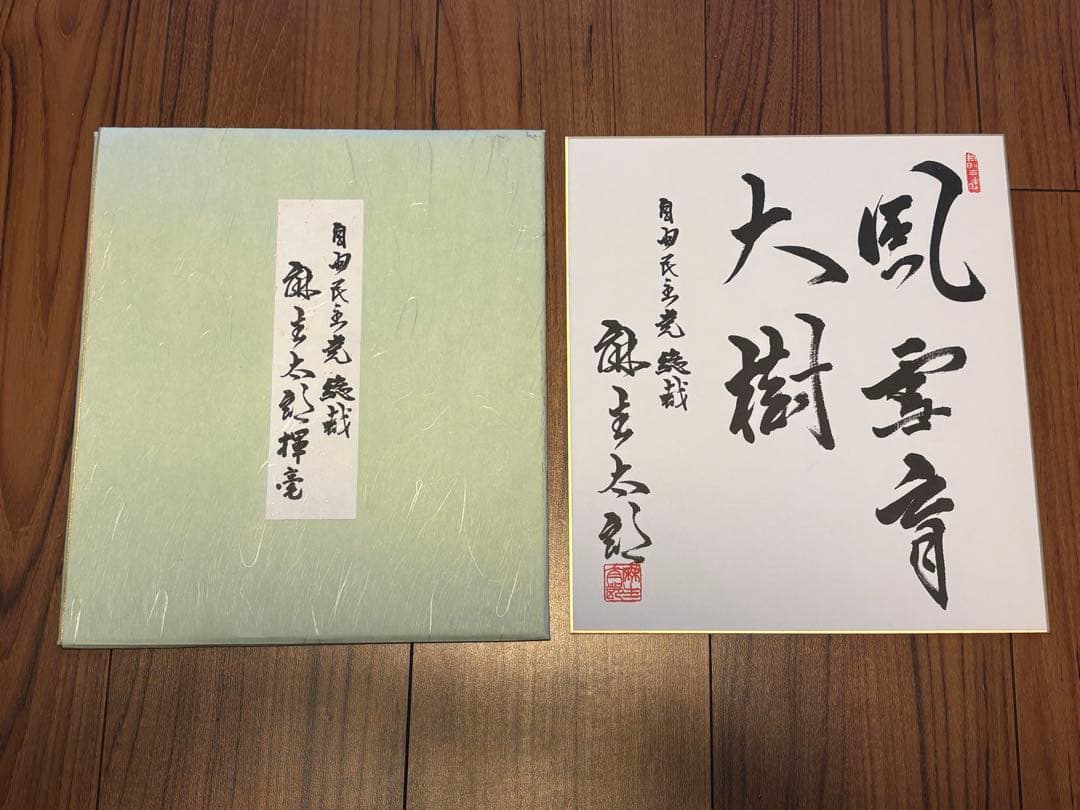 自由民主党 総裁
麻生太郎揮毫
風雪育
大樹
自由民主党 総裁
麻生太郎
麻生太郎